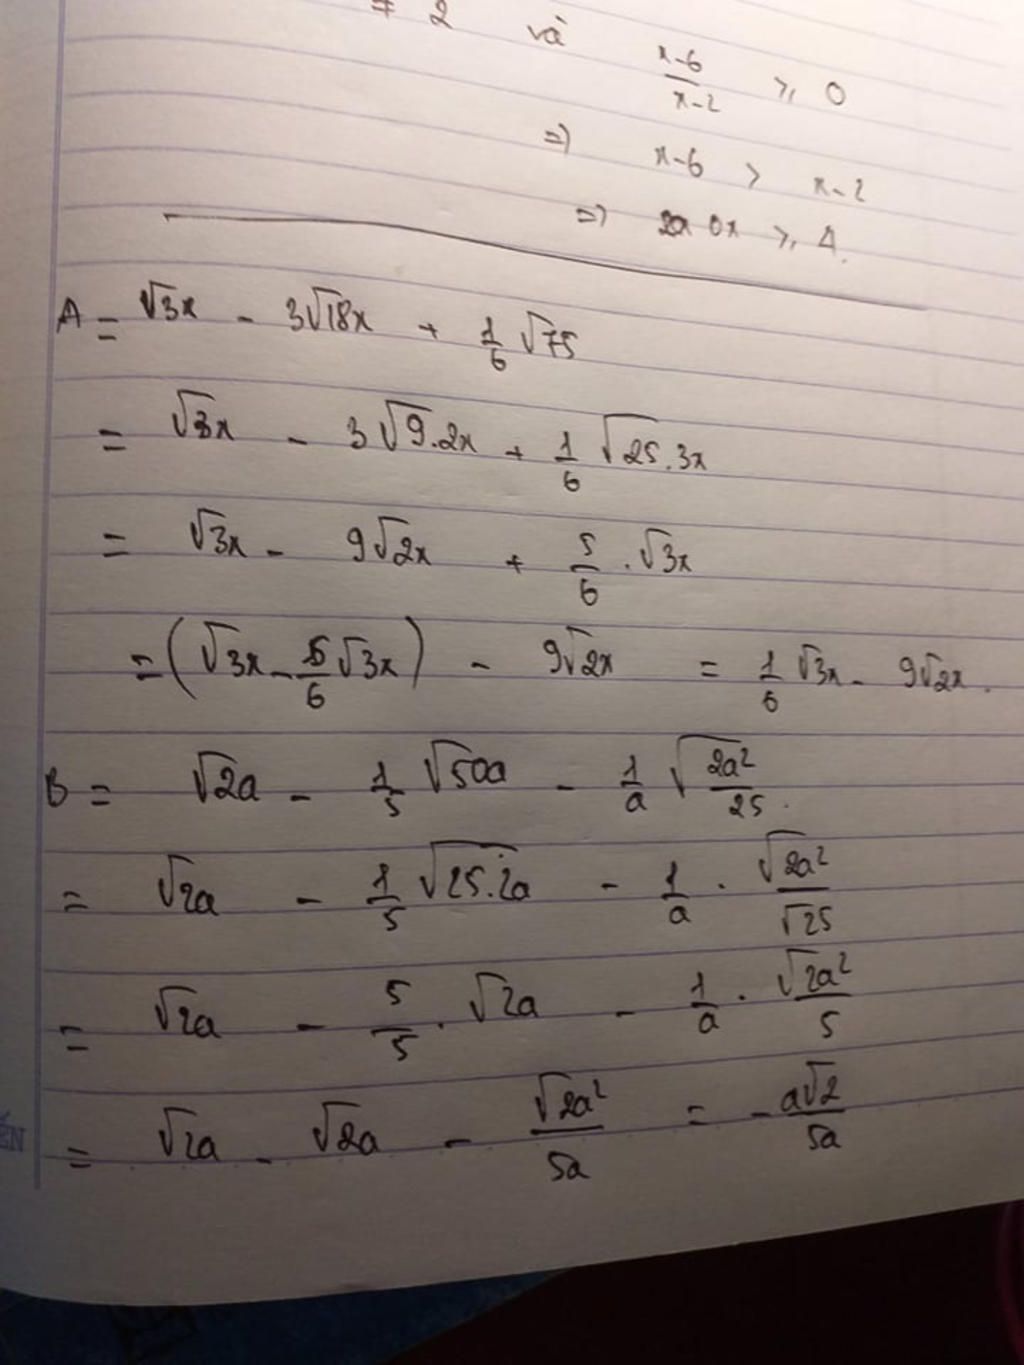 ≠ 2 và \frac{x-6}{x-2} ⩾ 0
⇒ x-6 > x-2
⇒ 0x ⩾ 4.
A = √3x - 3√18x + \frac{1}{6} √75
= √3x - 3√9.2x + \frac{1}{6} √25.3x
= √3x - 9√2x + \frac{5}{6} . √3x
= (√3x - \frac{5}{6} √3x) - 9√2x = \frac{1}{6} √3x - 9√2x.
B = √2a - \frac{1}{5} √50a - \frac{1}{a} √\frac{2a²}{25}.
= √2a - \frac{1}{5} √25.2a - \frac{1}{a} . \frac{√2a²}{√25}
= √2a - \frac{5}{5} . √2a - \frac{1}{a} . \frac{√2a²}{5}
= √2a - √2a - \frac{√2a²}{5a} = - \frac{a√2}{5a}